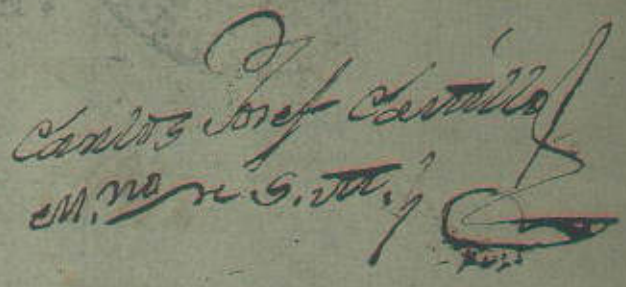 Carlos Josef Castillo
M.no de S. M.